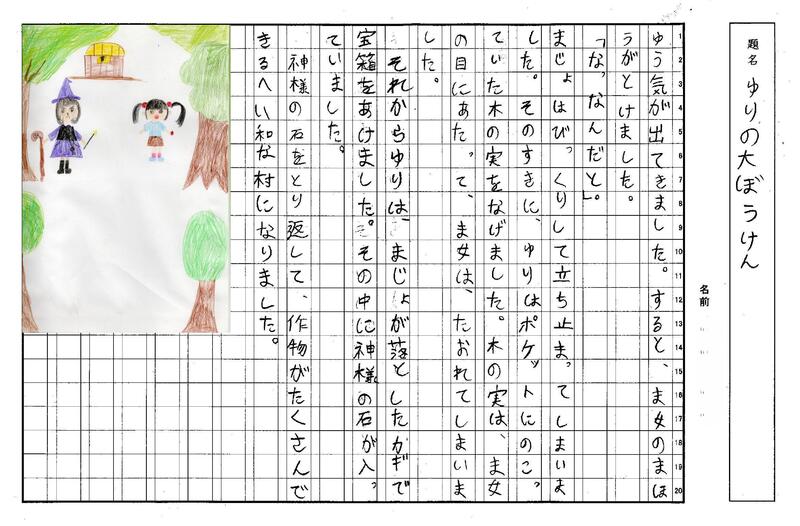 題名 ゆりの大ぼうけん
名前
1 2 3 4 5 6 7 8 9 10 11 12 13 14 15 16 17 18 19 20
ゆう気が出てきました。すると、ま女のまほ
うがとけました。
「なっなんだと」。
まじょはびっくりして立ち止まってしまいま
した。そのすきに、ゆりはポケットにのこっ
ていた木の実をなげました。木の実は、ま女
の目にあたって、ま女は、たおれてしまいま
した。
それからゆりは、まじょが落としたかギで
宝箱をあけました。その中に神様の石が入っ
ていました。
神様の石をとり返して、作物がたくさんで
きるへい和な村になりました。